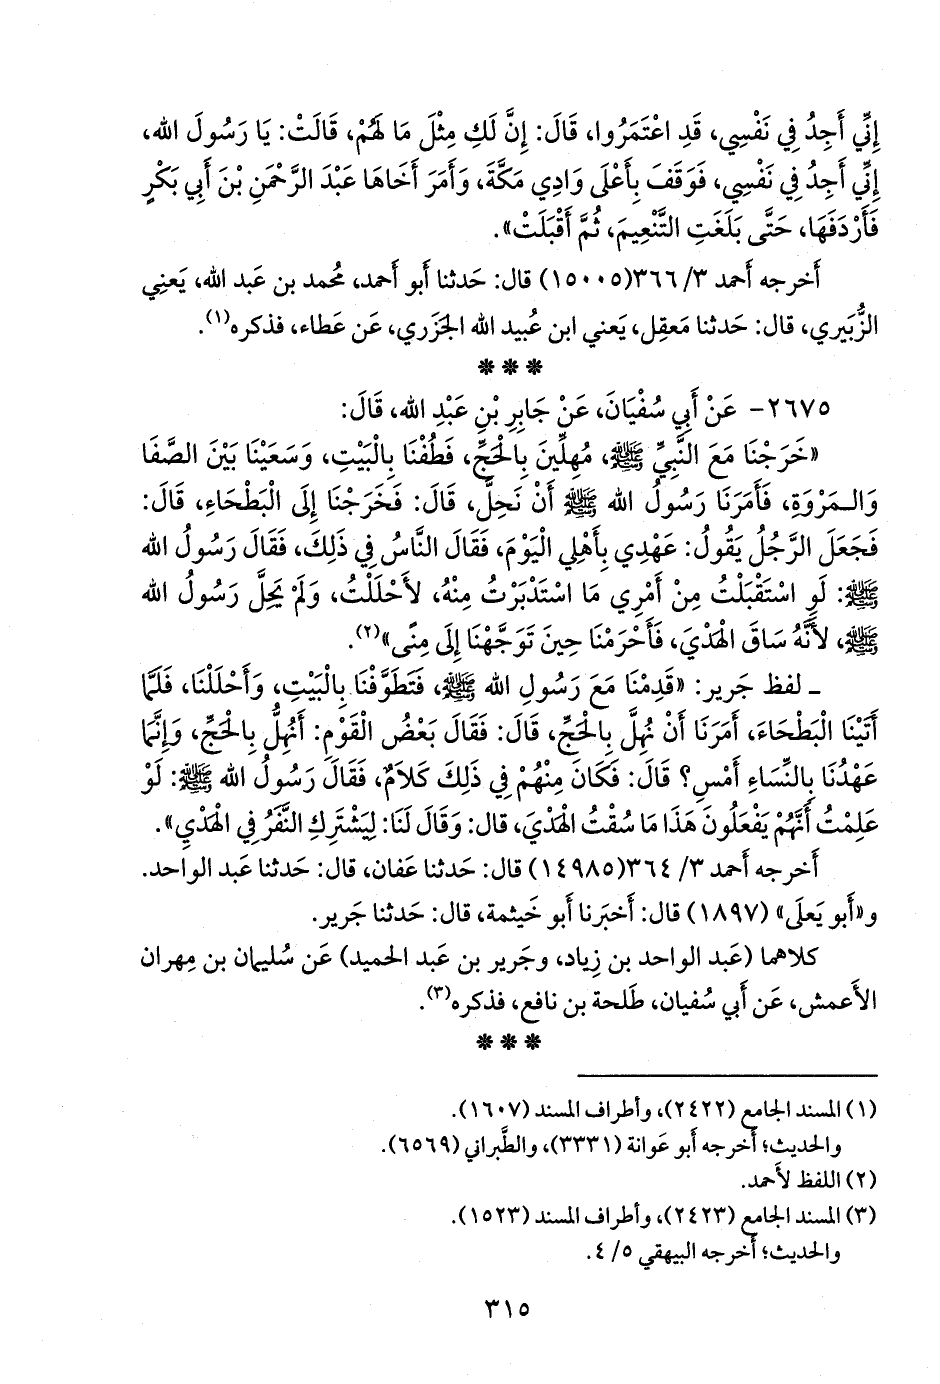 إِنِّي أَجِدُ فِي نَفْسِي، قَدِ اعْتَمَرُوا، قَالَ: إِنَّ لَكِ مِثْلَ مَا لَهُمْ، قَالَتْ: يَا رَسُولَ الله،
إِنِّي أَجِدُ فِي نَفْسِي، فَوَقَفَ بِأَعْلَى وَادِي مَكَّةَ، وَأَمَرَ أَخَاهَا عَبْدَ الرَّحْمَنِ بْنَ أَبِي بَكْرٍ
فَأَرْدَفَهَا، حَتَّى بَلَغَتِ التَّنْعِيمَ، ثُمَّ أَقْبَلَتْ».
أَخرجه أَحمد ٣/ ٣٦٦(١٥٠٠٥) قال: حَدثنا أَبو أَحمد، مُحمد بن عَبد الله، يَعنِي
الزُّبَيري، قال: حَدثنا مَعقِل، يَعني ابن عُبيد الله الجَزَري، عَن عَطاء، فذكره(١).
* * *
٢٦٧٥- عَنْ أَبِي سُفْيَانَ، عَنْ جَابِرِ بْنِ عَبْدِ الله، قَالَ:
«خَرَجْنَا مَعَ النَّبِيِّ ﷺ، مُهِلِّينَ بِالْحَجِّ، فَطُفْنَا بِالْبَيْتِ، وَسَعَيْنَا بَيْنَ الصَّفَا
وَالـمَرْوَةِ، فَأَمَرَنَا رَسُولُ الله ﷺ أَنْ نَحِلَّ، قَالَ: فَخَرَجْنَا إِلَى الْبَطْحَاءِ، قَالَ:
فَجَعَلَ الرَّجُلُ يَقُولُ: عَهْدِي بِأَهْلِي الْيَوْمَ، فَقَالَ النَّاسُ فِي ذَلِكَ، فَقَالَ رَسُولُ الله
ﷺ: لَوِ اسْتَقْبَلْتُ مِنْ أَمْرِي مَا اسْتَدْبَرْتُ مِنْهُ، لأَحْلَلْتُ، وَلَمْ يَحِلَّ رَسُولُ الله
ﷺ، لأَنَّهُ سَاقَ الْهَدْيَ، فَأَحْرَمْنَا حِينَ تَوَجَّهْنَا إِلَى مِنًى»(٢).
ـ لفظ جَرير: «قَدِمْنَا مَعَ رَسُولِ الله ﷺ، فَتَطَوَّفْنَا بِالْبَيْتِ، وَأَحْلَلْنَا، فَلَمَّا
أَتَيْنَا الْبَطْحَاءَ، أَمَرَنَا أَنْ نُهِلَّ بِالْحَجِّ، قَالَ: فَقَالَ بَعْضُ الْقَوْمِ: أَنُهِلُّ بِالْحَجِّ، وَإِنَّمَا
عَهْدُنَا بِالنِّسَاءِ أَمْسِ؟ قَالَ: فَكَانَ مِنْهُمْ فِي ذَلِكَ كَلاَمٌ، فَقَالَ رَسُولُ الله ﷺ: لَوْ
عَلِمْتُ أَنَّهُمْ يَفْعَلُونَ هَذَا مَا سُقْتُ الْهَدْيَ، قال: وَقَالَ لَنَا: لِيَشْتَرِكِ النَّفَرُ فِي الْهَدْيِ».
أَخرجه أَحمد ٣/ ٣٦٤(١٤٩٨٥) قال: حَدثنا عَفان، قال: حَدثنا عَبد الواحد.
و«أَبو يَعلَى» (١٨٩٧) قال: أَخبَرنا أَبو خَيثمة، قال: حَدثنا جَرير.
كلاهما (عَبد الواحد بن زِياد، وجَرير بن عَبد الحَميد) عَن سُليمان بن مِهران
الأَعمش، عَن أَبي سُفيان، طَلحة بن نافع، فذكره(٣).
* * *
(١) المسند الجامع (٢٤٢٢)، وأطراف المسند (١٦٠٧).
والحديث؛ أَخرجه أَبو عَوانة (٣٣٣١)، والطَّبراني (٦٥٦٩).
(٢) اللفظ لأَحمد.
(٣) المسند الجامع (٢٤٢٣)، وأطراف المسند (١٥٢٣).
والحديث؛ أَخرجه البيهقي ٥/ ٤.
٣١٥